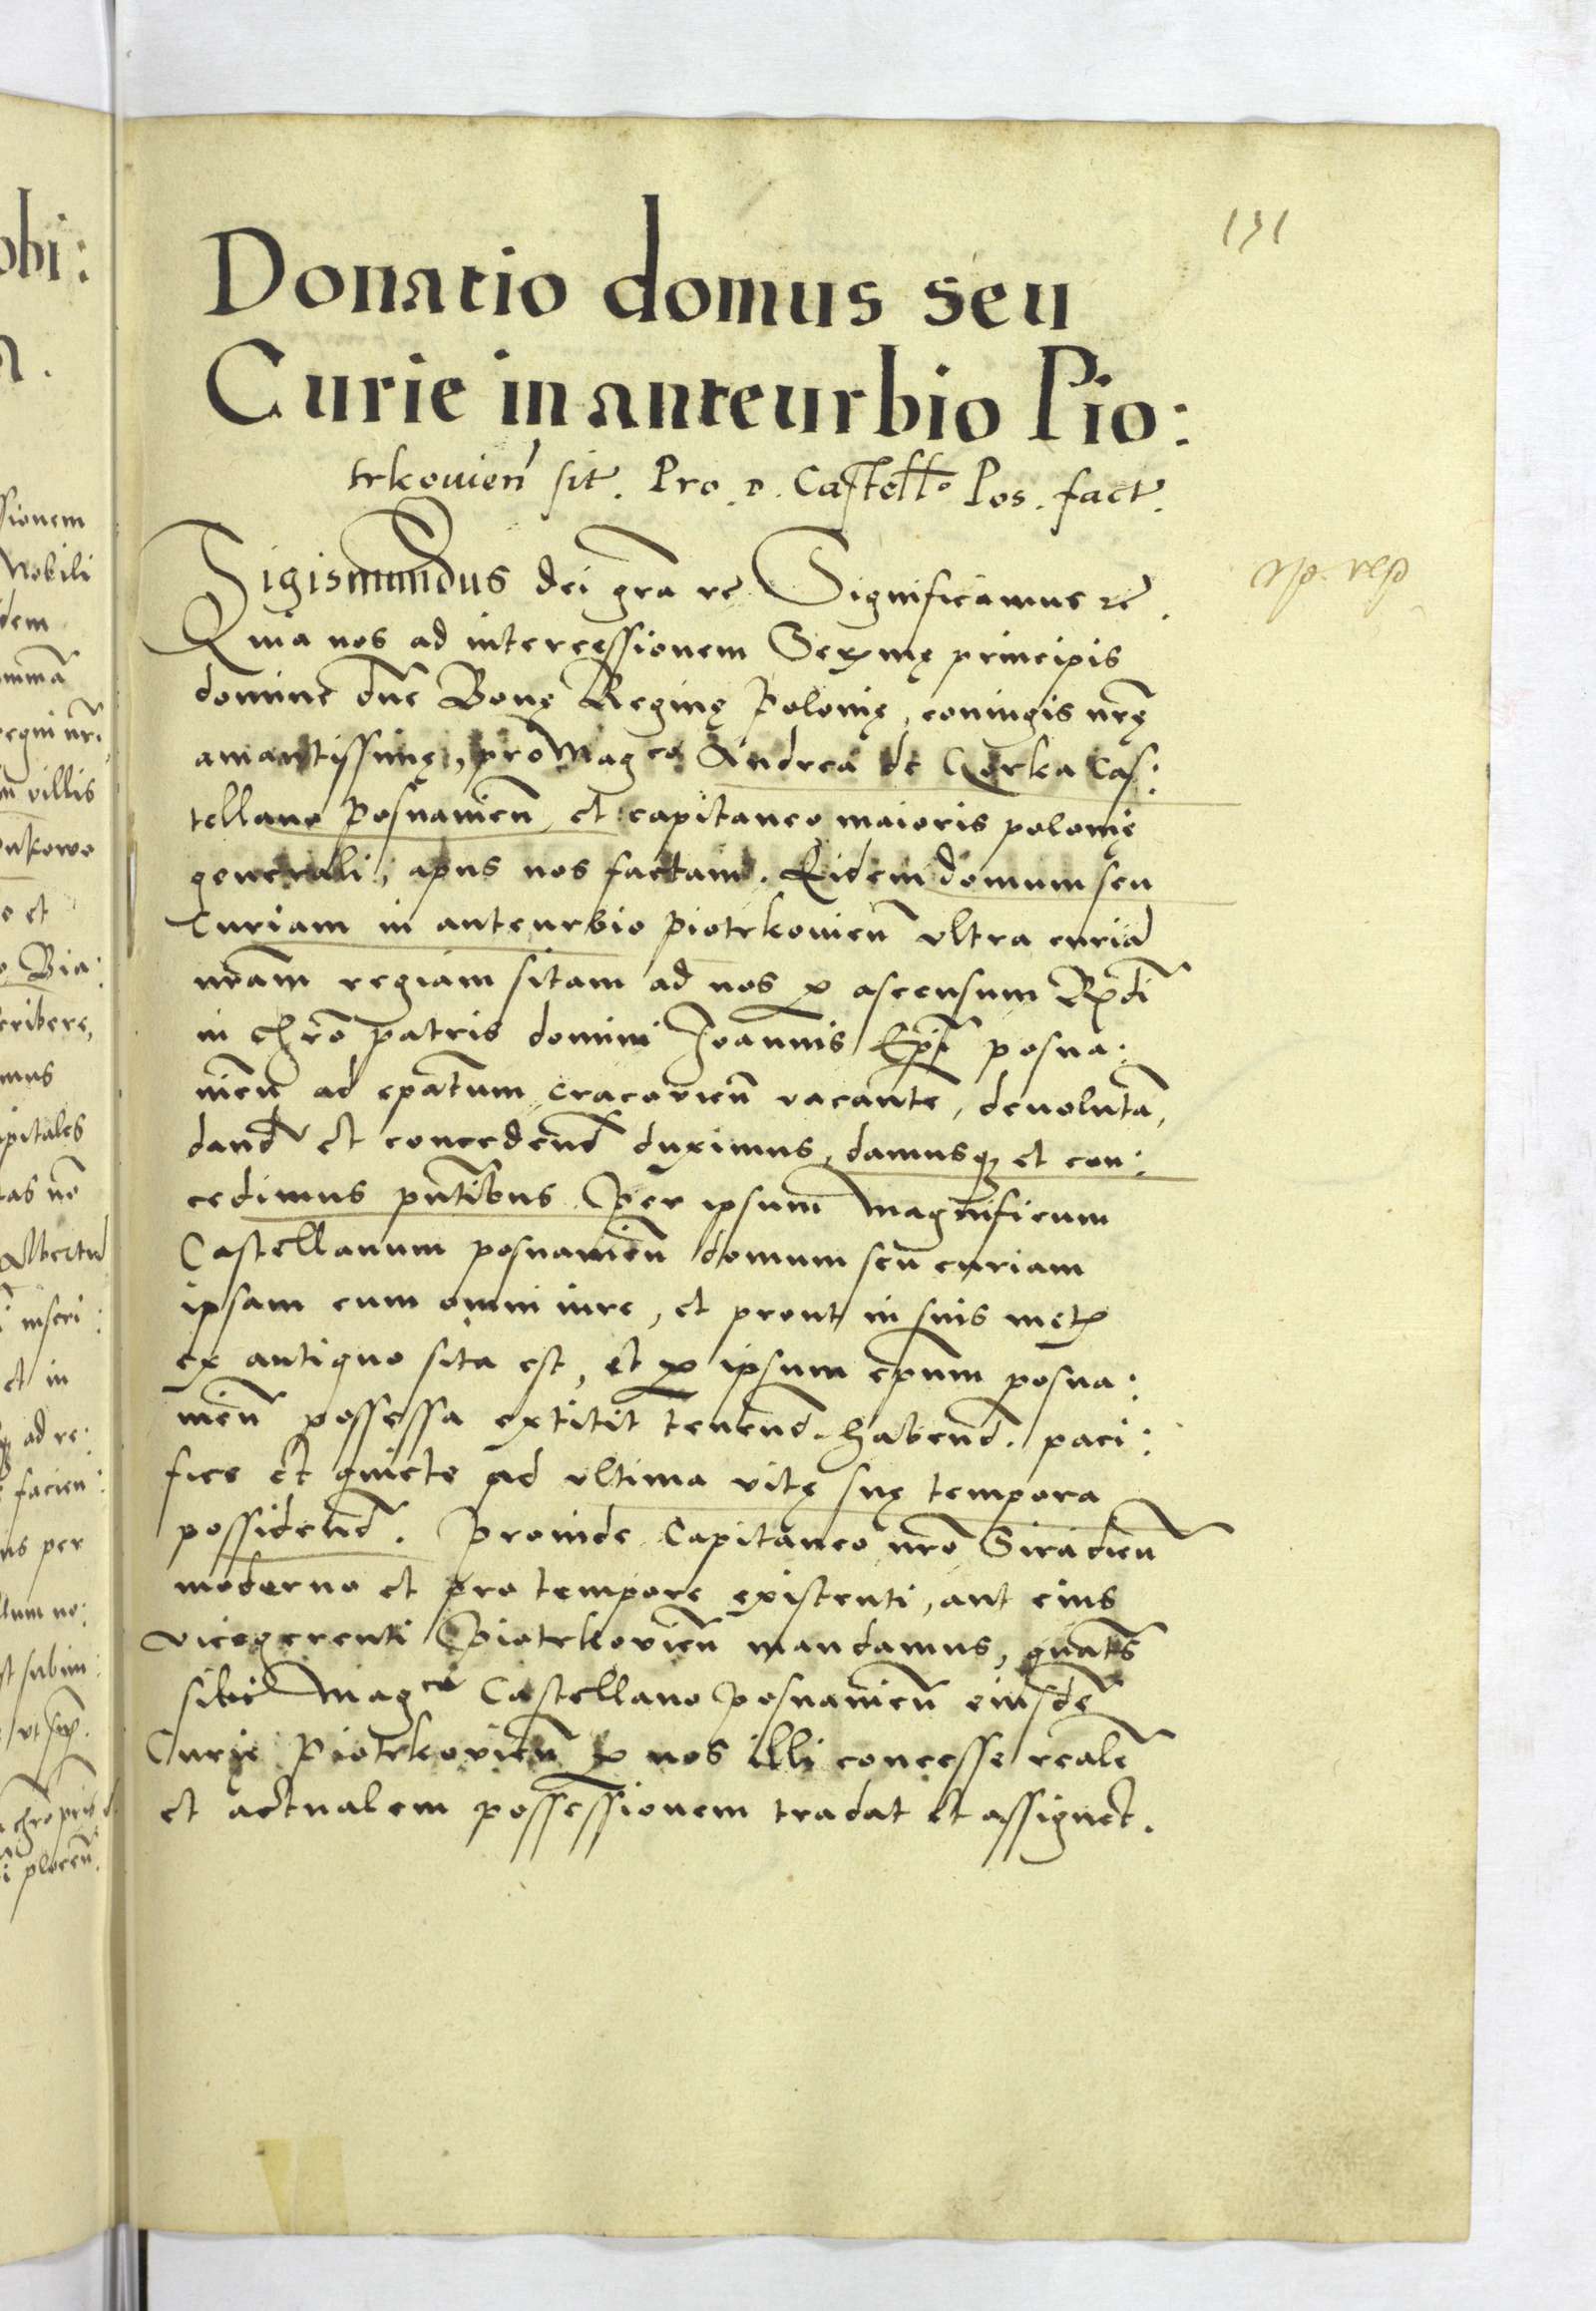 131
Donatio domus seu
Curie in anteurbio Pio:
trkouien̄ sit. Pro .D. Castell̄o Pos. fact.
Sigismundus dei gr̄a rc Significamus rc.
Quia nos ad intercessionem Serꝫmę principis
domine dn̄e Bonę Reginę Polonię, coniugis nr̄ę
amantissimę, pro Magco Andrea de Gorka Cas:
tellano Posnanien̄ et capitaneo maioris polonię
generali, apus nos factam. Eidem domum seu
Curiam in anteurbio Piotrkouien̄ vltra curiā
nr̄am regiam sitam ad nos ꝑ ascensum Rn̄di
in chr̄o patris domini Joannis Ep̄i posna:
nien̄ ad ep̄atum cracovien̄ vacantē, deuolutā,
dand̄ et concedend̄ duximus, damusqꝫ et con:
cedimus pn̄tibus. Per ipsum Magnificum
Castellanum posnanien̄ domum seu curiam
ipsam cum omni iure, et prout in suis met̄
ex antiquo sita est, et ꝑ ipsum ep̄um posna:
nien̄ possessa extitit tenend̄. habend̄. paci:
fice et quiete ad vltima vitę suę tempora
possidend̄. Proinde Capitaneo nr̄o Siradien̄
moderno et pro tempore existenti, aut eius
vicegerenti Piotrkovien̄ mandamus, quat̄s
sibi Magco Castellano Posnanien̄ eiusdē
Curię Piotrkovien̄ ꝑ nos illi concesse realē
et actualem possessionem tradat et assignet.
obi:
ssionem
Nobili
dem
ommā
regni nr̄i
villis
o et
Bia:
cribere,
mus
pitales
tas nō
Albertū
inseri:
et in
ad re:
facien:
us per
lum no:
st subim:
chr̄o pris d.
plocen̄.